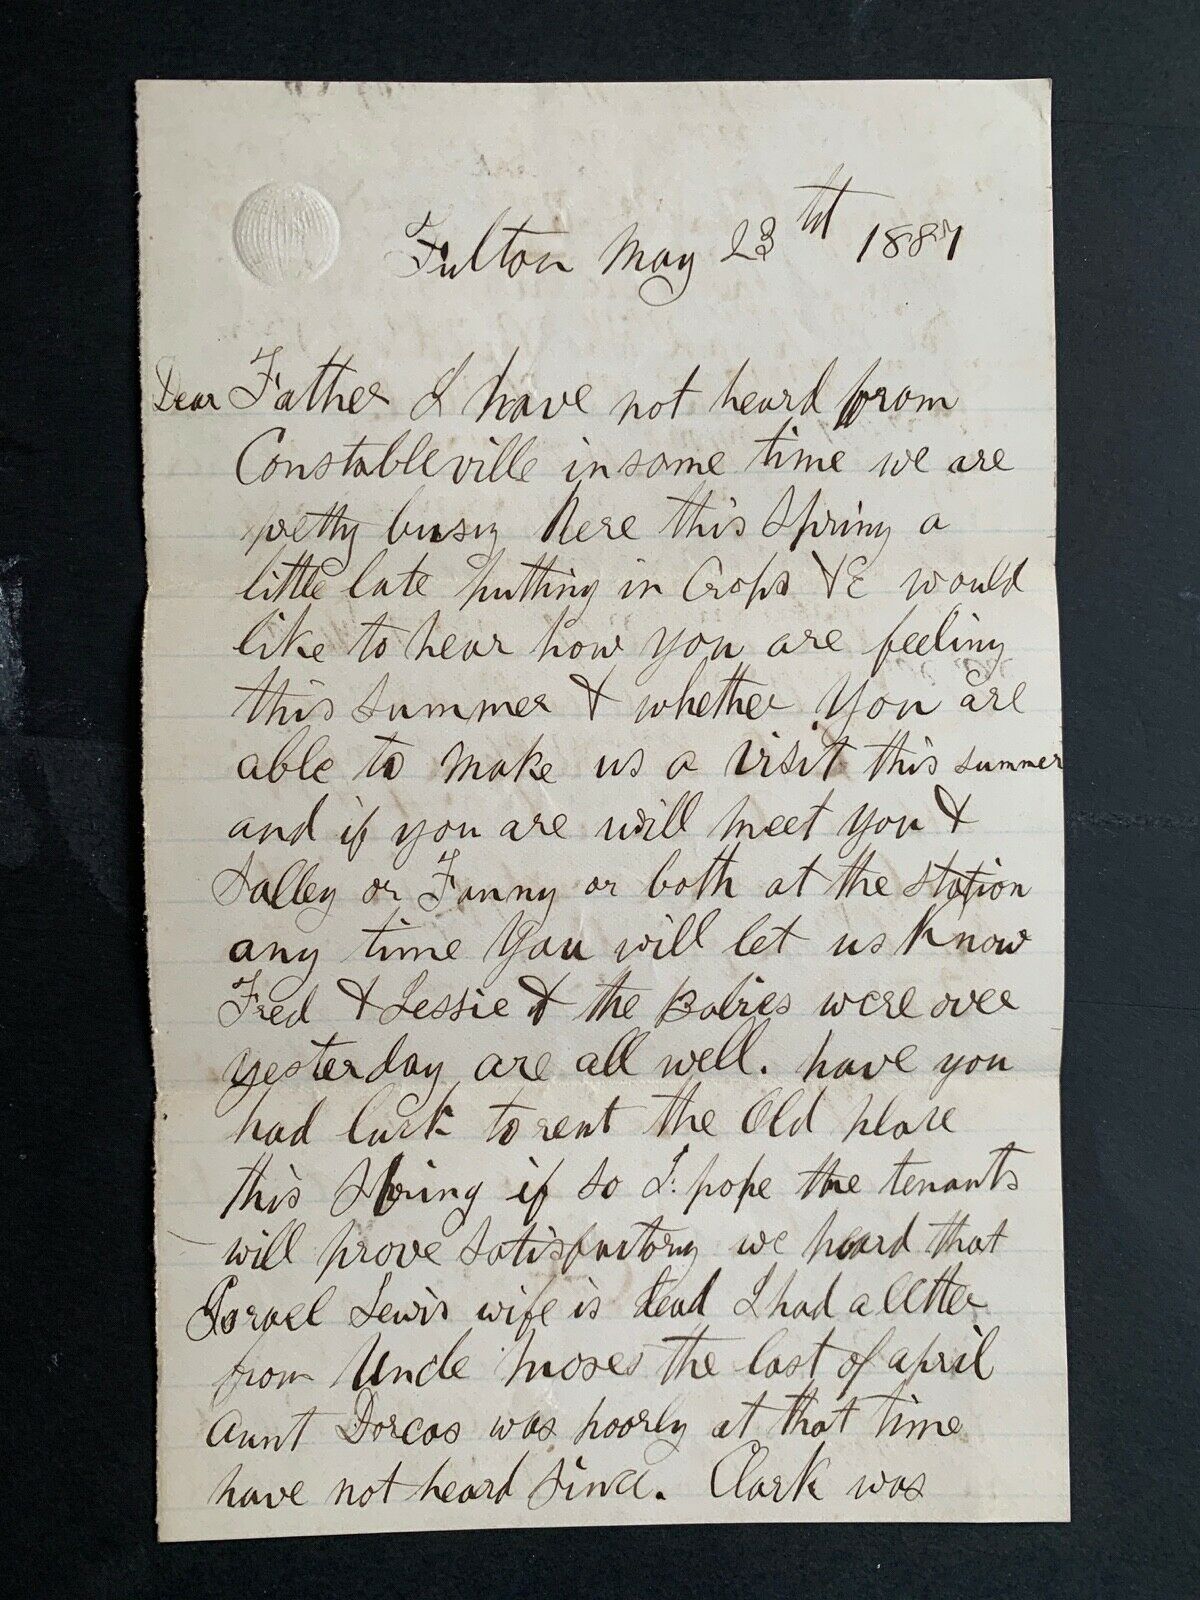 Fulton May 23 1887
Dear Father I have not heard from
Constableville in some time we are
pretty busy here this Spring a
little late putting in Crops &c would
like to hear how you are feeling
this summer & whether you are
able to make us a visit this summer
and if you are will meet you &
Salley or Fanny or both at the station
any time you will let us know
Fred & Jessie & the Babies were over
yesterday are all well. have you
had luck to rent the Old place
this Spring if so I hope the tenants
will prove satisfactory we heard that
Israel Lewis wife is dead I had a letter
from Uncle Moses the last of april
aunt Dorcas was poorly at that time
have not heard since. Clark was